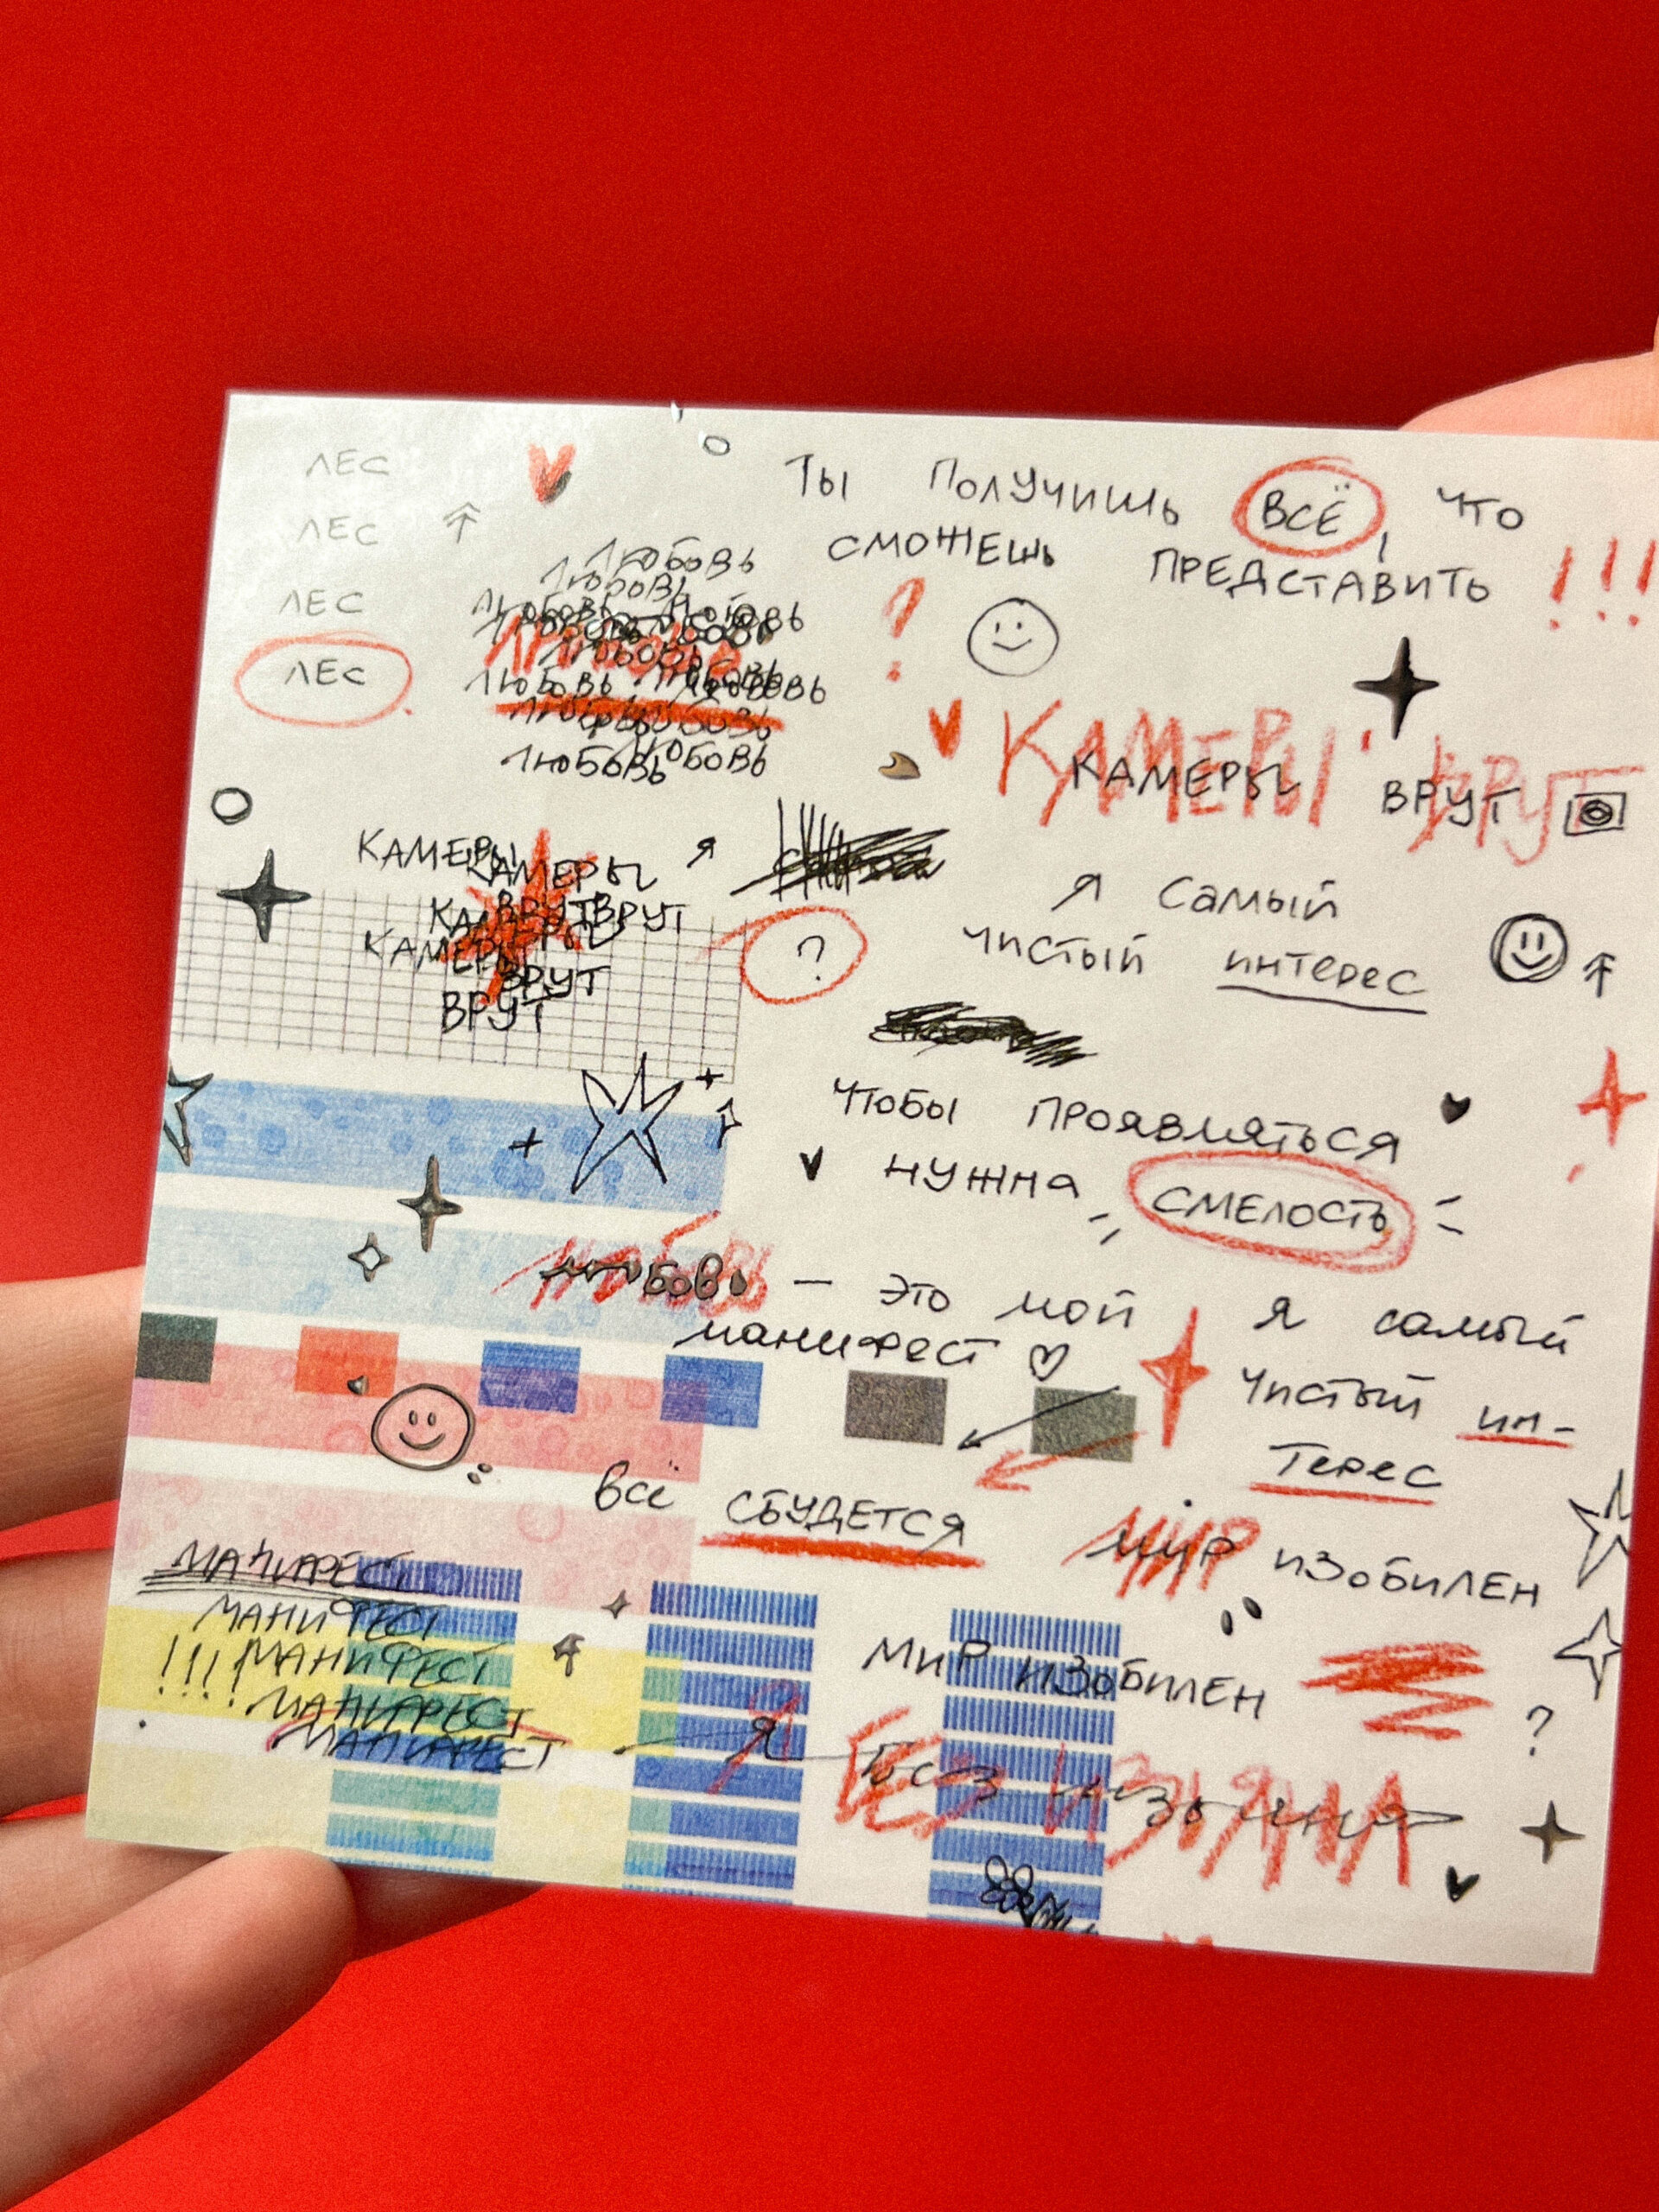 ЛЕС
ЛЕС
ЛЕС
ЛЕС
ЛЮБОВЬ
ЛЮБОВЬ
ЛЮБОВЬ
ЛЮБОВЬ
ЛЮБОВЬ
ЛЮБОВЬ ЛЮБОВЬ
ТЫ ПОЛУЧИШЬ ВСЁ, ЧТО
СМОЖЕШЬ ПРЕДСТАВИТЬ !!!
?
КАМЕРЫ ВРУТ
КАМЕРЫ ВРУТ
КАМЕРЫ КАМЕРЫ
ВРУТ ВРУТ
КАМЕРЫ
ВРУТ
ВРУТ
?
Самый
чистый интерес
Чтобы ПРОЯВЛЯТЬСЯ
НУЖНА СМЕЛОСТЬ
любовь — это мой
манифест
Я самый
чистый ин-
терес
всё СБУДЕТСЯ
МИР ИЗОБИЛЕН
МАНИФЕСТ
МАНИФЕСТ
!!!! МАНИФЕСТ
МАНИФЕСТ
МАНИФЕСТ
МИР ИЗОБИЛЕН
?
Я БЕЗ ИЗЪЯНА